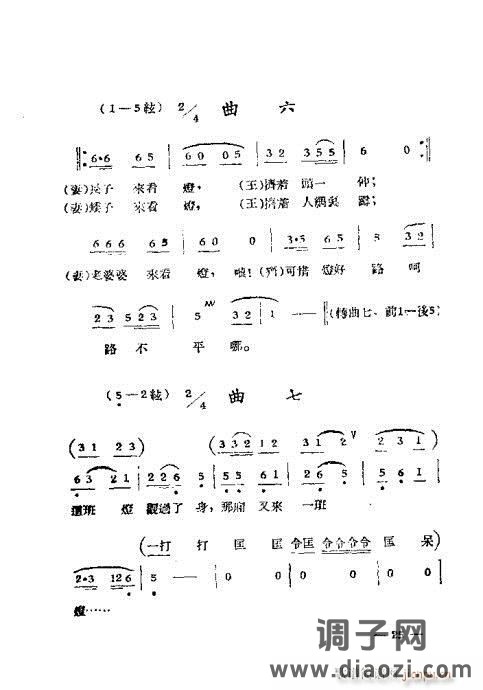 (1—5絃) 2/4 曲 六
6·6 6 5 | 6 0 0 5 | 3 2 3 5 5 | 6 0
(妻)長子 來看 燈, (王)擠着 頭一 伸;
(妻)矮子 來看 燈, (王)擠着 人縫裏 蹲;
6 6 6 6 5 | 6 0 0 | 3·5 6 5 | 5 3 2
(妻)老婆婆 來看 燈, 哦! (齊)可惜 燈好 路 呵
2 3 5 2 3 | 5 3 2 1 | 1 — (轉曲七、前1—後5)
路 不 平 哪。
(5—2絃) 2/4 曲 七
(3 1 2 3) (3 3 2 1 2 3 1 2 2 3 1)
6 3 2 1 | 2 2 6 5 | 5 5 6 1 | 5 5 2 | 5 6 1
這班 燈 觀過了 身, 那廂 又來 一班
(一打 打 匡 匡 令匡 令令令令 匡 呆)
2·3 1 2 6 | 5 — | 0 0 | 0 0 | 0 0
燈……
— 25 —
调子网
www.diaozi.com